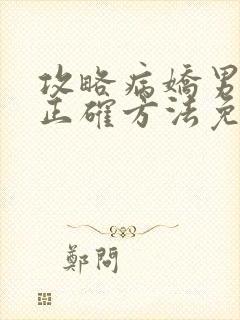 攻略病嬌男
正確方法免
鄭問